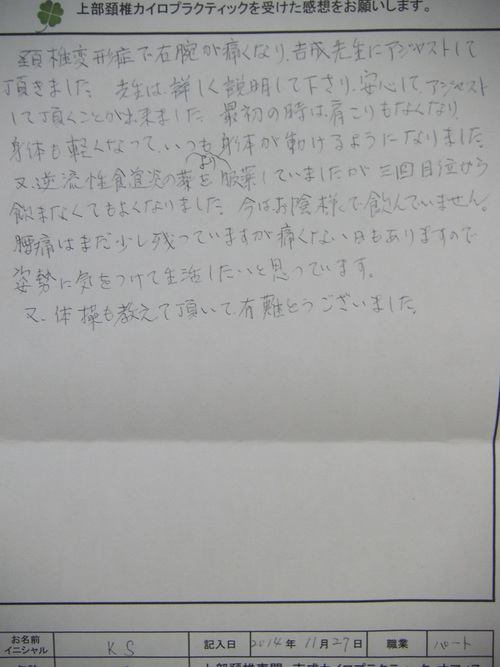 上部頚椎カイロプラクティックを受けた感想をお願いします。
頚椎変形症で右腕が痛くなり、吉成先生にアジャストして
頂きました。先生は、詳しく説明して下さり、安心して、アジャスト
して頂くことが出来ました。最初の時は、肩こりもなくなり、
身体も軽くなって、いつもより身体が動けるようになりました。
又、逆流性食道炎の薬を服薬していましたが三回目位から
飲まなくてもよくなりました。今はお陰様で飲んでいません。
腰痛はまだ少し残っていますが痛くない日もありますので
姿勢に気をつけて生活したいと思っています。
又、体操も教えて頂いて、有難とうございました。
お名前
イニシャル
KS
記入日
2014年 11月27日
職業
パート